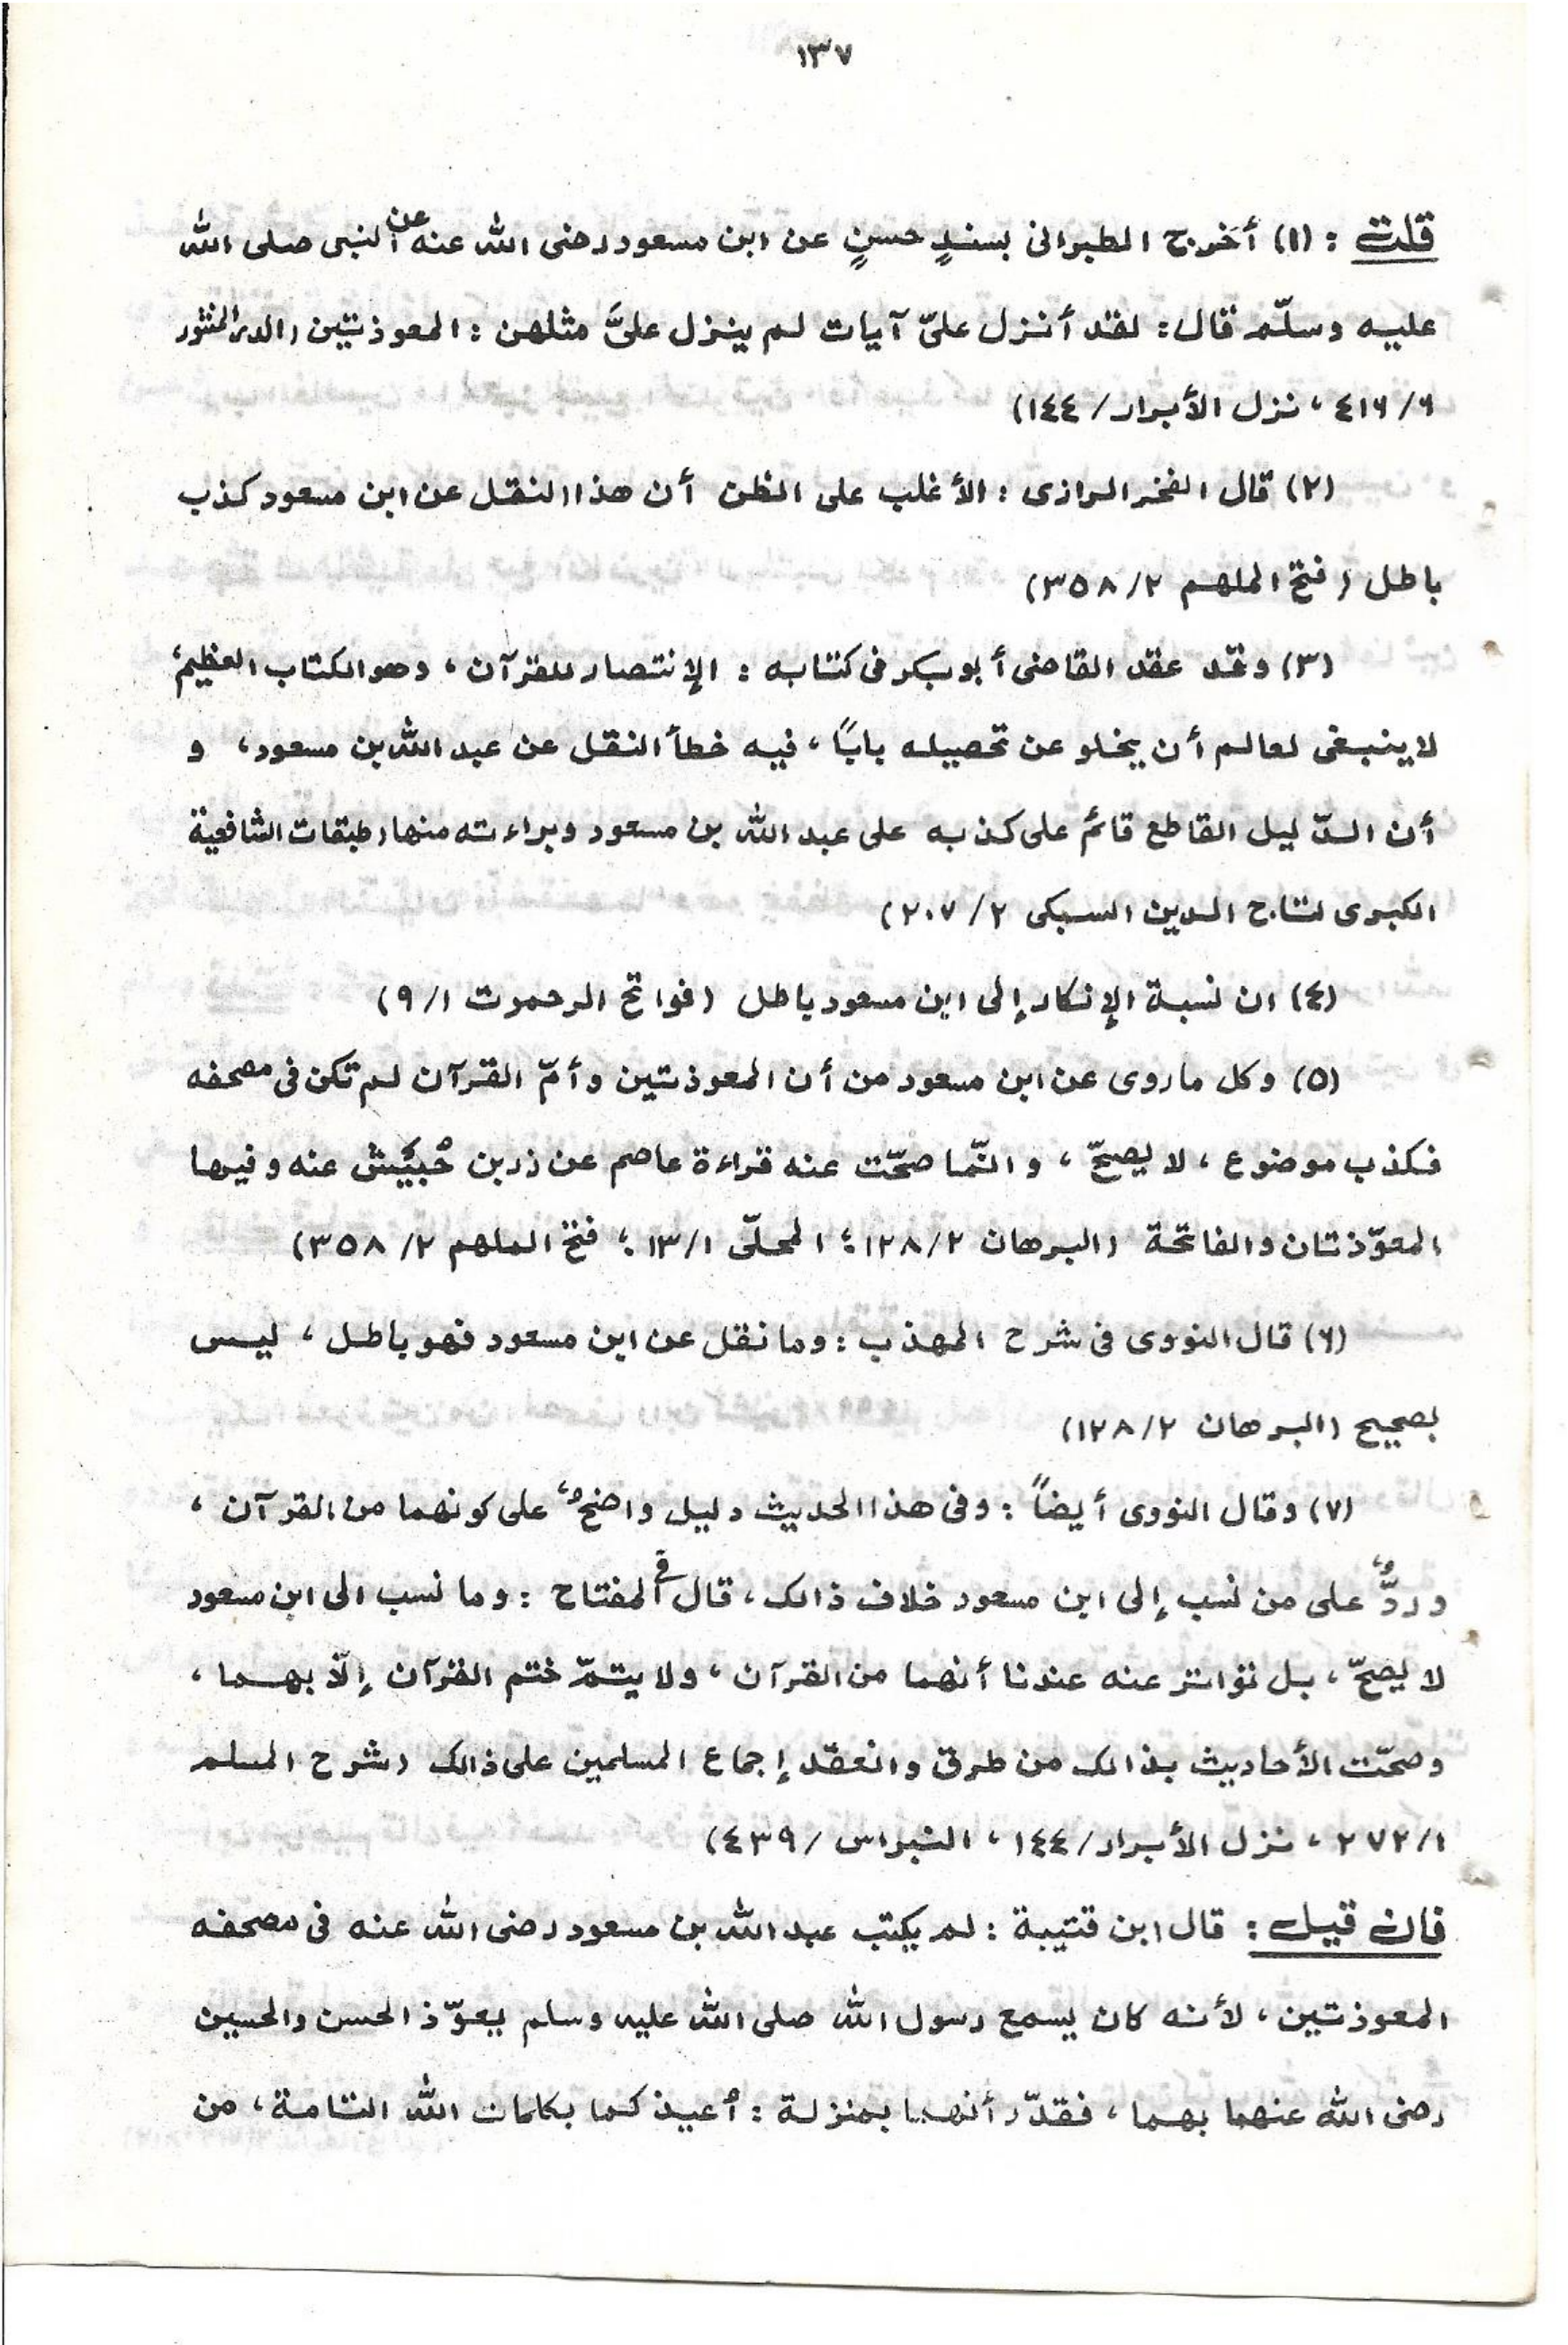 ١٣٧
قلت : (١) أخرج الطبرانى بسندٍ حسنٍ عن ابن مسعود رضى الله عنه عن النبى صلى الله
عليه وسلّم قال: لقد أنزل علىّ آيات لم ينزل علىَّ مثلهن : المعوذتين (الدر المنثور
٤١٦/٦ ، نزل الأبرار/ ١٤٤)
(٢) قال الفخر الرازى : الأغلب على الظن أن هذا النقل عن ابن مسعود كذب
باطل (فتح الملهم ٣٥٨/٢)
(٣) وقد عقد القاضى أبو بكر فى كتابه : الإنتصار للقرآن ، وهو الكتاب العظيم،
لا ينبغى لعالم أن يخلو عن تحصيله بابًا ، فيه خطأ النقل عن عبد الله بن مسعود ، و
أن الدّليل القاطع قائم على كذبه على عبد الله بن مسعود وبراءته منها (طبقات الشافعية
الكبرى لتاج الدين السبكى ٢٠٧/٢)
(٤) ان نسبة الإنكار إلى ابن مسعود باطل (فواتح الرحموت ٩/١)
(٥) وكل ما روى عن ابن مسعود من أن المعوذتين وأمّ القرآن لم تكن فى مصحفه
فكذب موضوع ، لا يصحّ ، و انّما صحّت عنه قراءة عاصم عن زر بن حُبَيْش عنه وفيها
المعوّذتان والفاتحة (البرهان ١٢٨/٢ ؛ المحلّى ١٣/١ ؛ فتح الملهم ٣٥٨/٢)
(٦) قال النووى فى شرح المهذب : وما نقل عن ابن مسعود فهو باطل ، ليس
بصحيح (البرهان ١٢٨/٢)
(٧) وقال النووى أيضاً : وفى هذا الحديث دليل واضحٌ، على كونهما من القرآن ،
وردٌّ، على من نسب إلى ابن مسعود خلاف ذالك ، قال فى المفتاح : وما نسب الى ابن مسعود
لا يصحّ ، بل تواتر عنه عندنا أنهما من القرآن ، ولا يتمّ ختم القرآن إلّا بهما ،
وصحّت الأحاديث بذالك من طرق وانعقد إجماع المسلمين على ذالك (شرح المسلم
٢٧٢/١ ، نزل الأبرار/ ١٤٤ ، النبراس /٤٣٩)
فان قيل : قال ابن قتيبة : لم يكتب عبد الله بن مسعود رضى الله عنه فى مصحفه
المعوذتين ، لأنه كان يسمع رسول الله صلى الله عليه وسلم يعوّذ الحسن والحسين
رضى الله عنهما بهما ، فقدّر أنهما بمنزلة : أُعيذكما بكلمات الله التامة ، من